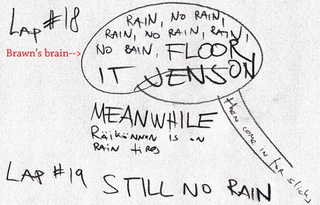 LAP #18
RAIN, NO RAIN,
RAIN, NO RAIN, RAIN,
NO RAIN, FLOOR
IT JENSON
Brawn's brain-->
then come in for slicks
MEANWHILE
Räikkönen is on
rain tires
LAP #19 STILL NO RAIN